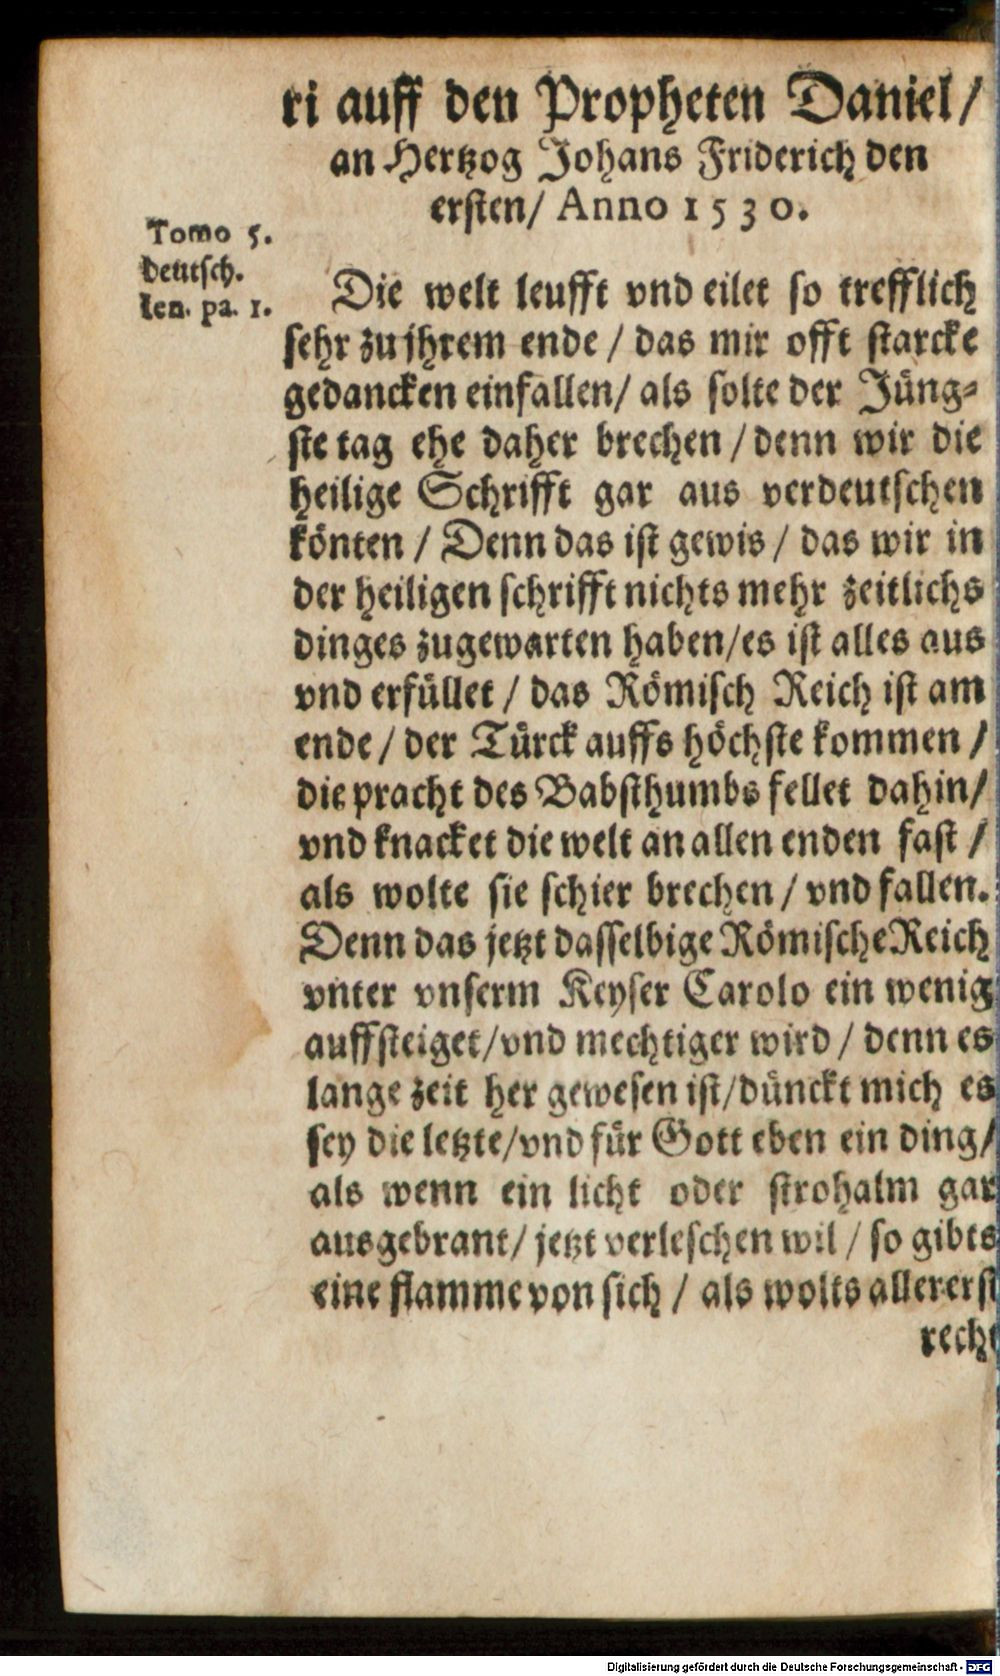 ri auff den Propheten Daniel/
an Hertzog Johans Friderich den
ersten/ Anno 1530.
Tomo 5.
deutsch.
Ien. pa. 1.
Die welt leufft vnd eilet so trefflich
sehr zu jhrem ende / das mir offt starcke
gedancken einfallen/ als solte der Jüng-
ste tag ehe daher brechen / denn wir die
heilige Schrifft gar aus verdeutschen
könten / Denn das ist gewis / das wir in
der heiligen schrifft nichts mehr zeitlichs
dinges zugewarten haben/es ist alles aus
vnd erfüllet / das Römisch Reich ist am
ende / der Türck auffs höchste kommen /
die pracht des Babsthumbs fellet dahin/
vnd knacket die welt an allen enden fast /
als wolte sie schier brechen / vnd fallen.
Denn das jetzt dasselbige Römische Reich
vnter vnserm Keyser Carolo ein wenig
auffsteiget/vnd mechtiger wird / denn es
lange zeit her gewesen ist/dünckt mich es
sey die letzte/vnd für Gott eben ein ding/
als wenn ein licht oder strohalm gar
ausgebrant/ jetzt verleschen wil / so gibts
eine flamme von sich / als wolts allererst
recht
Digitalisierung gefördert durch die Deutsche Forschungsgemeinschaft - DFG